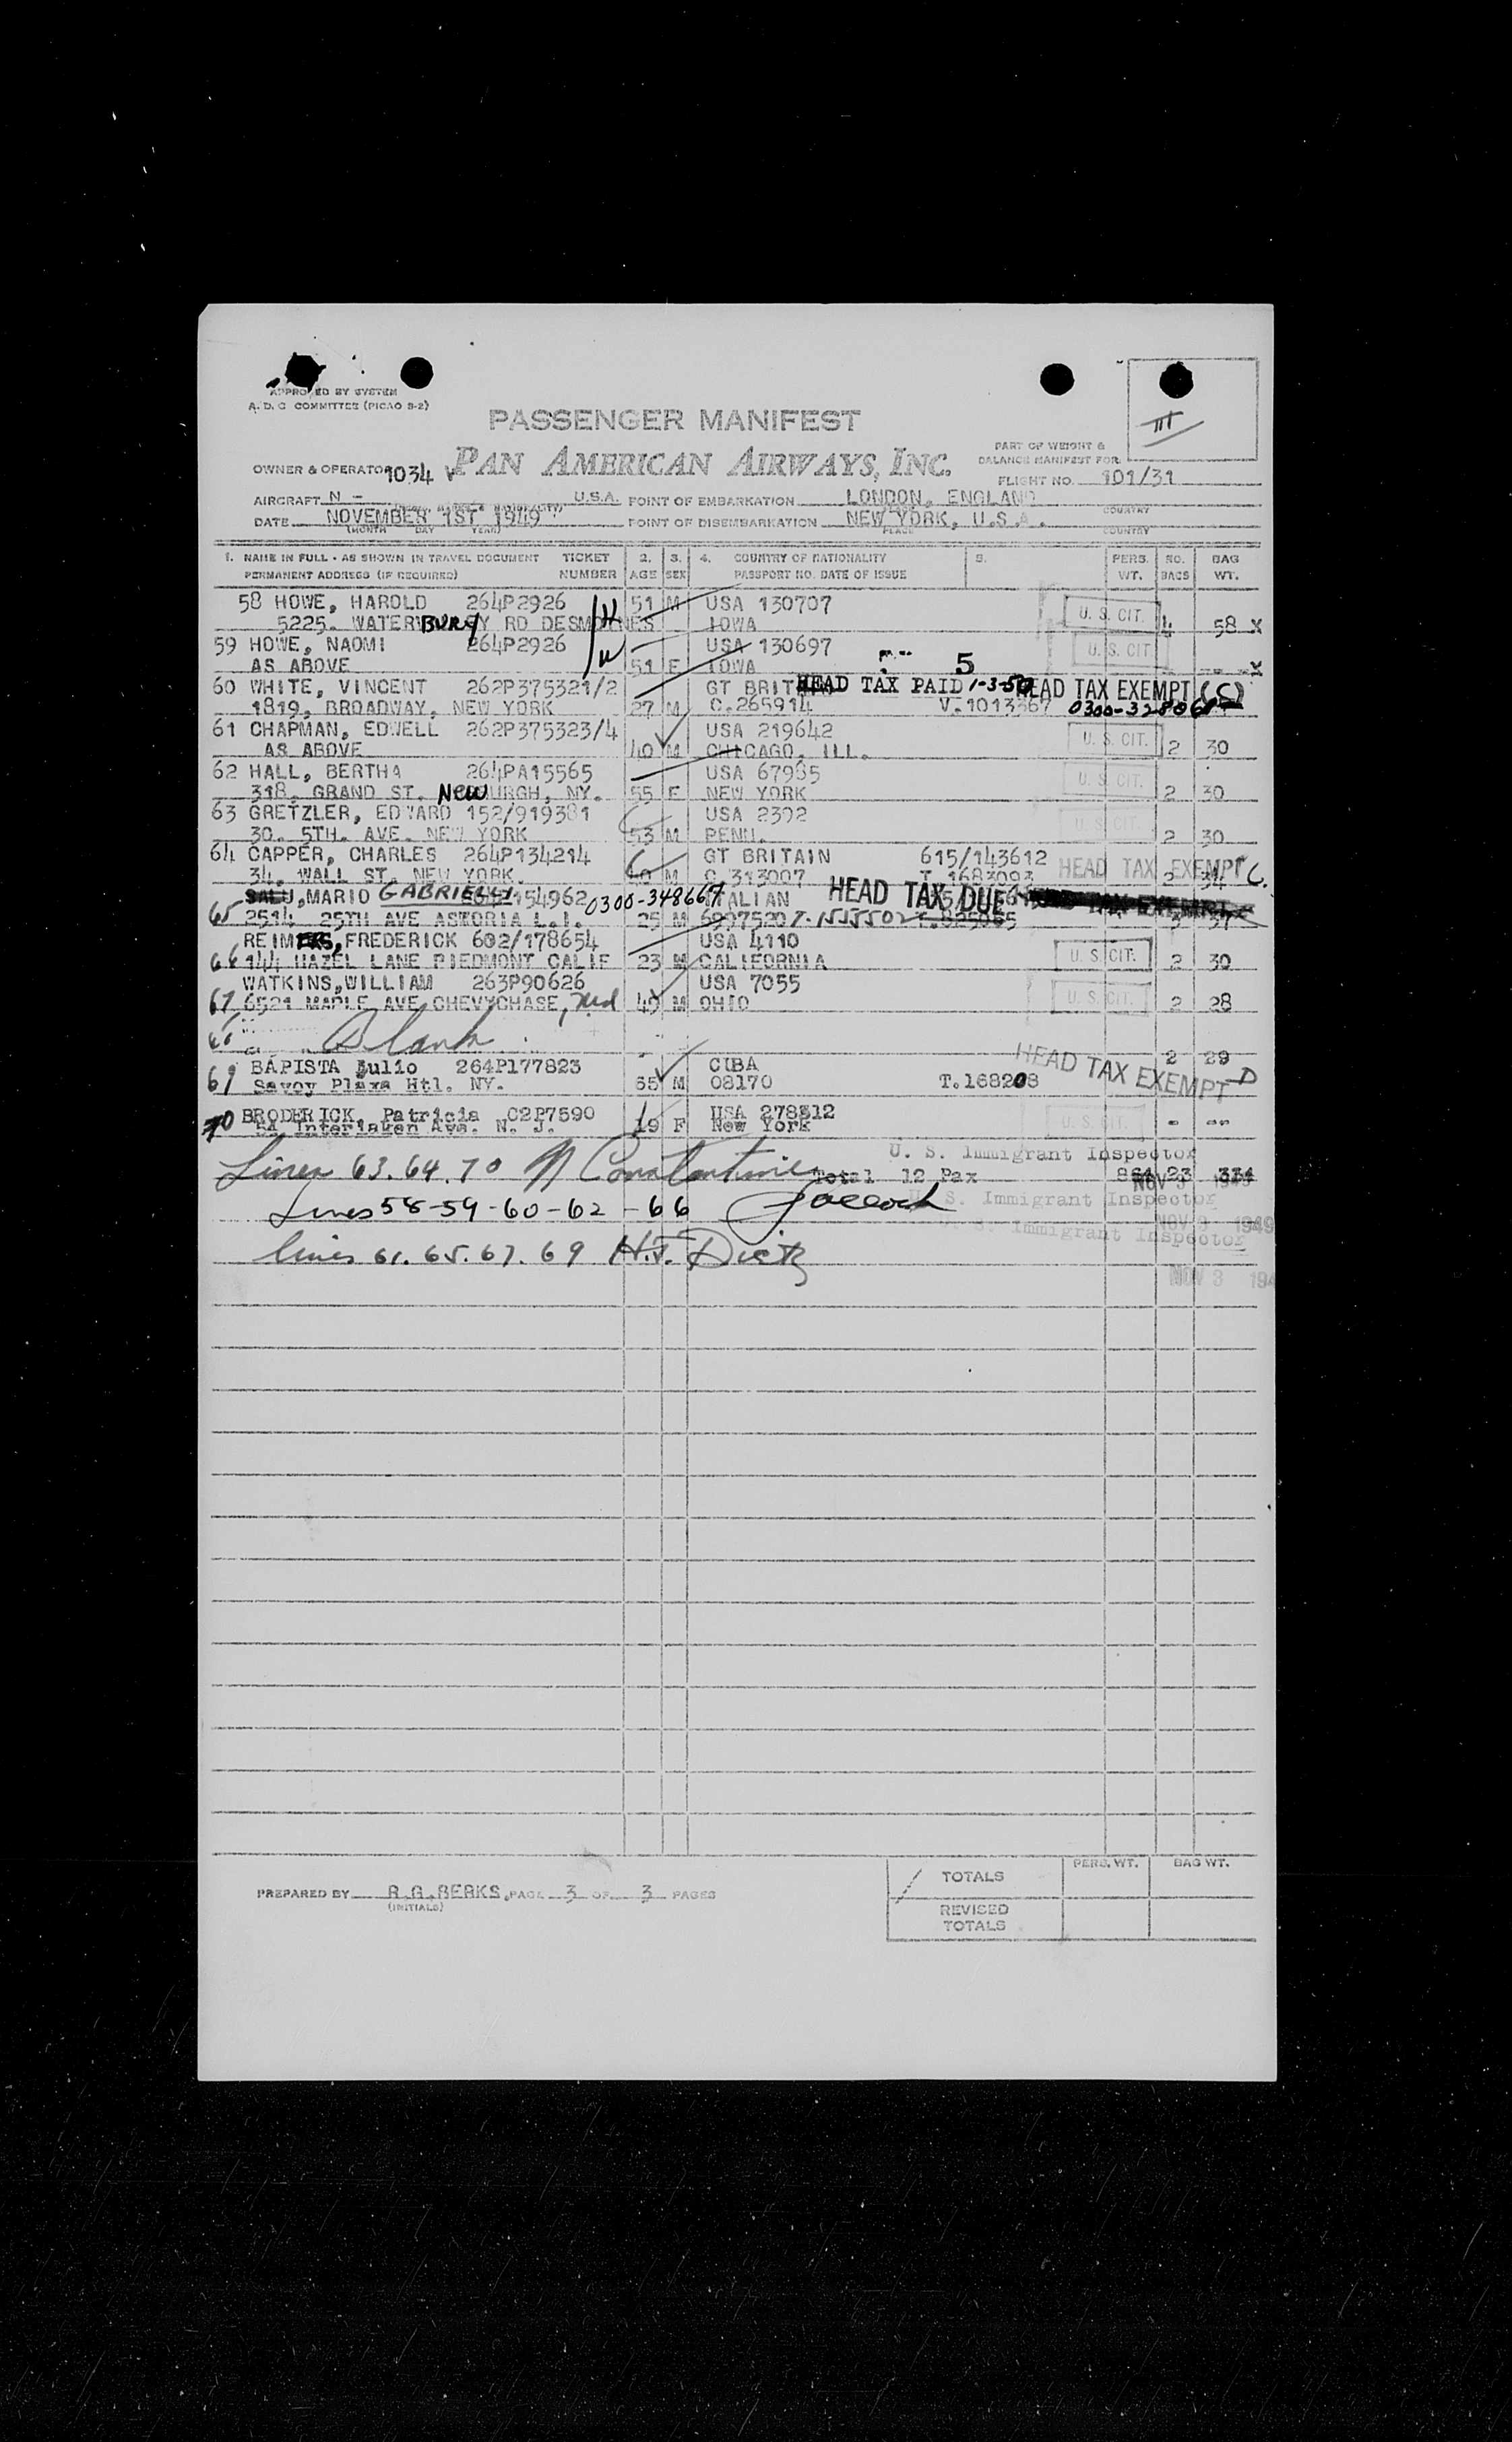 APPROVED BY SYSTEM
A. D. C COMMITTEE (PICAO S-2)
III
PASSENGER MANIFEST
PART OF WEIGHT &
BALANCE MANIFEST FOR
OWNER & OPERATOR 1034 V PAN AMERICAN AIRWAYS, INC.
FLIGHT NO. 101/31
AIRCRAFT N - U.S.A. POINT OF EMBARKATION LONDON, ENGLAND
COUNTRY
DATE NOVEMBER 1ST 1949 POINT OF DISEMBARKATION NEW YORK, U.S.A.
(MONTH DAY YEAR) PLACE COUNTRY
1. NAME IN FULL - AS SHOWN IN TRAVEL DOCUMENT TICKET 2. 3. 4. COUNTRY OF NATIONALITY 5. PERS. NO. BAG
PERMANENT ADDRESS (IF REQUIRED) NUMBER AGE SEX PASSPORT NO. DATE OF ISSUE WT. BAGS WT.
58 HOWE, HAROLD 264P2926 51 M USA 130707 U. S. CIT.
5225. WATERBURY RD DESMOINES IOWA 4 58 X
59 HOWE, NAOMI 264P2926 USA 130697 U. S. CIT.
AS ABOVE 51 F IOWA 5 - - X
60 WHITE, VINCENT 262P375321/2 GT BRIT HEAD TAX PAID 1-3-50 HEAD TAX EXEMPT (C)
1819, BROADWAY, NEW YORK 27 M C.265914 V.1013367
61 CHAPMAN, EDWELL 262P375323/4 USA 219642 U. S. CIT.
AS ABOVE 40 M CHICAGO, ILL. 2 30
62 HALL, BERTHA 264PA15565 USA 67985 U. S. CIT.
318, GRAND ST. NEWBURGH, NY. 55 F NEW YORK 2 30
63 GRETZLER, EDWARD 152/919381 USA 2302 U. S. CIT.
30. 5TH. AVE. NEW YORK 53 M PENN. 2 30
64 CAPPER, CHARLES 264P134214 GT BRITAIN 615/143612 HEAD TAX EXEMPT C.
34, WALL ST. NEW YORK. M C 313007 T. 1683093 2 34
MARIO GABRIELLI 154962 0300-348667 ITALIAN HEAD TAX DUE
65 2514 25TH AVE ASTORIA L.I. 25 M T.825065 3
REIMERS, FREDERICK 602/178654 USA 4110 U. S. CIT.
66 144 HAZEL LANE PIEDMONT CALIF 23 M CALIFORNIA 2 30
WATKINS, WILLIAM 263P90626 USA 7055 U. S. CIT.
67 6521 MAPLE AVE CHEVYCHASE, Md 49 M OHIO 2 28
Blank
2 29
69 BAPISTA Julio 264P177823 CUBA HEAD TAX EXEMPT D
Savoy Plaza Htl. NY. 65 M 08170 T.168208
70 BRODERICK, Patricia C2P7590 USA 278312 U. S. CIT.
54 Interlaken Ave. N. J. 19 F New York - --
U. S. Immigrant Inspector
Lines 63. 64. 70 N Constantine Total 12 Pax 864 23 334
NOV 3 1949
U. S. Immigrant Inspector
Lines 58-59-60-62-66
NOV 3 1949
U. S. Immigrant Inspector
lines 61. 65. 67. 69 H.J. Dietz
NOV 3 194
TOTALS PERS. WT. BAG WT.
PREPARED BY R.G.BERKS. PAGE 3 OF 3 PAGES
(INITIALS)
REVISED
TOTALS